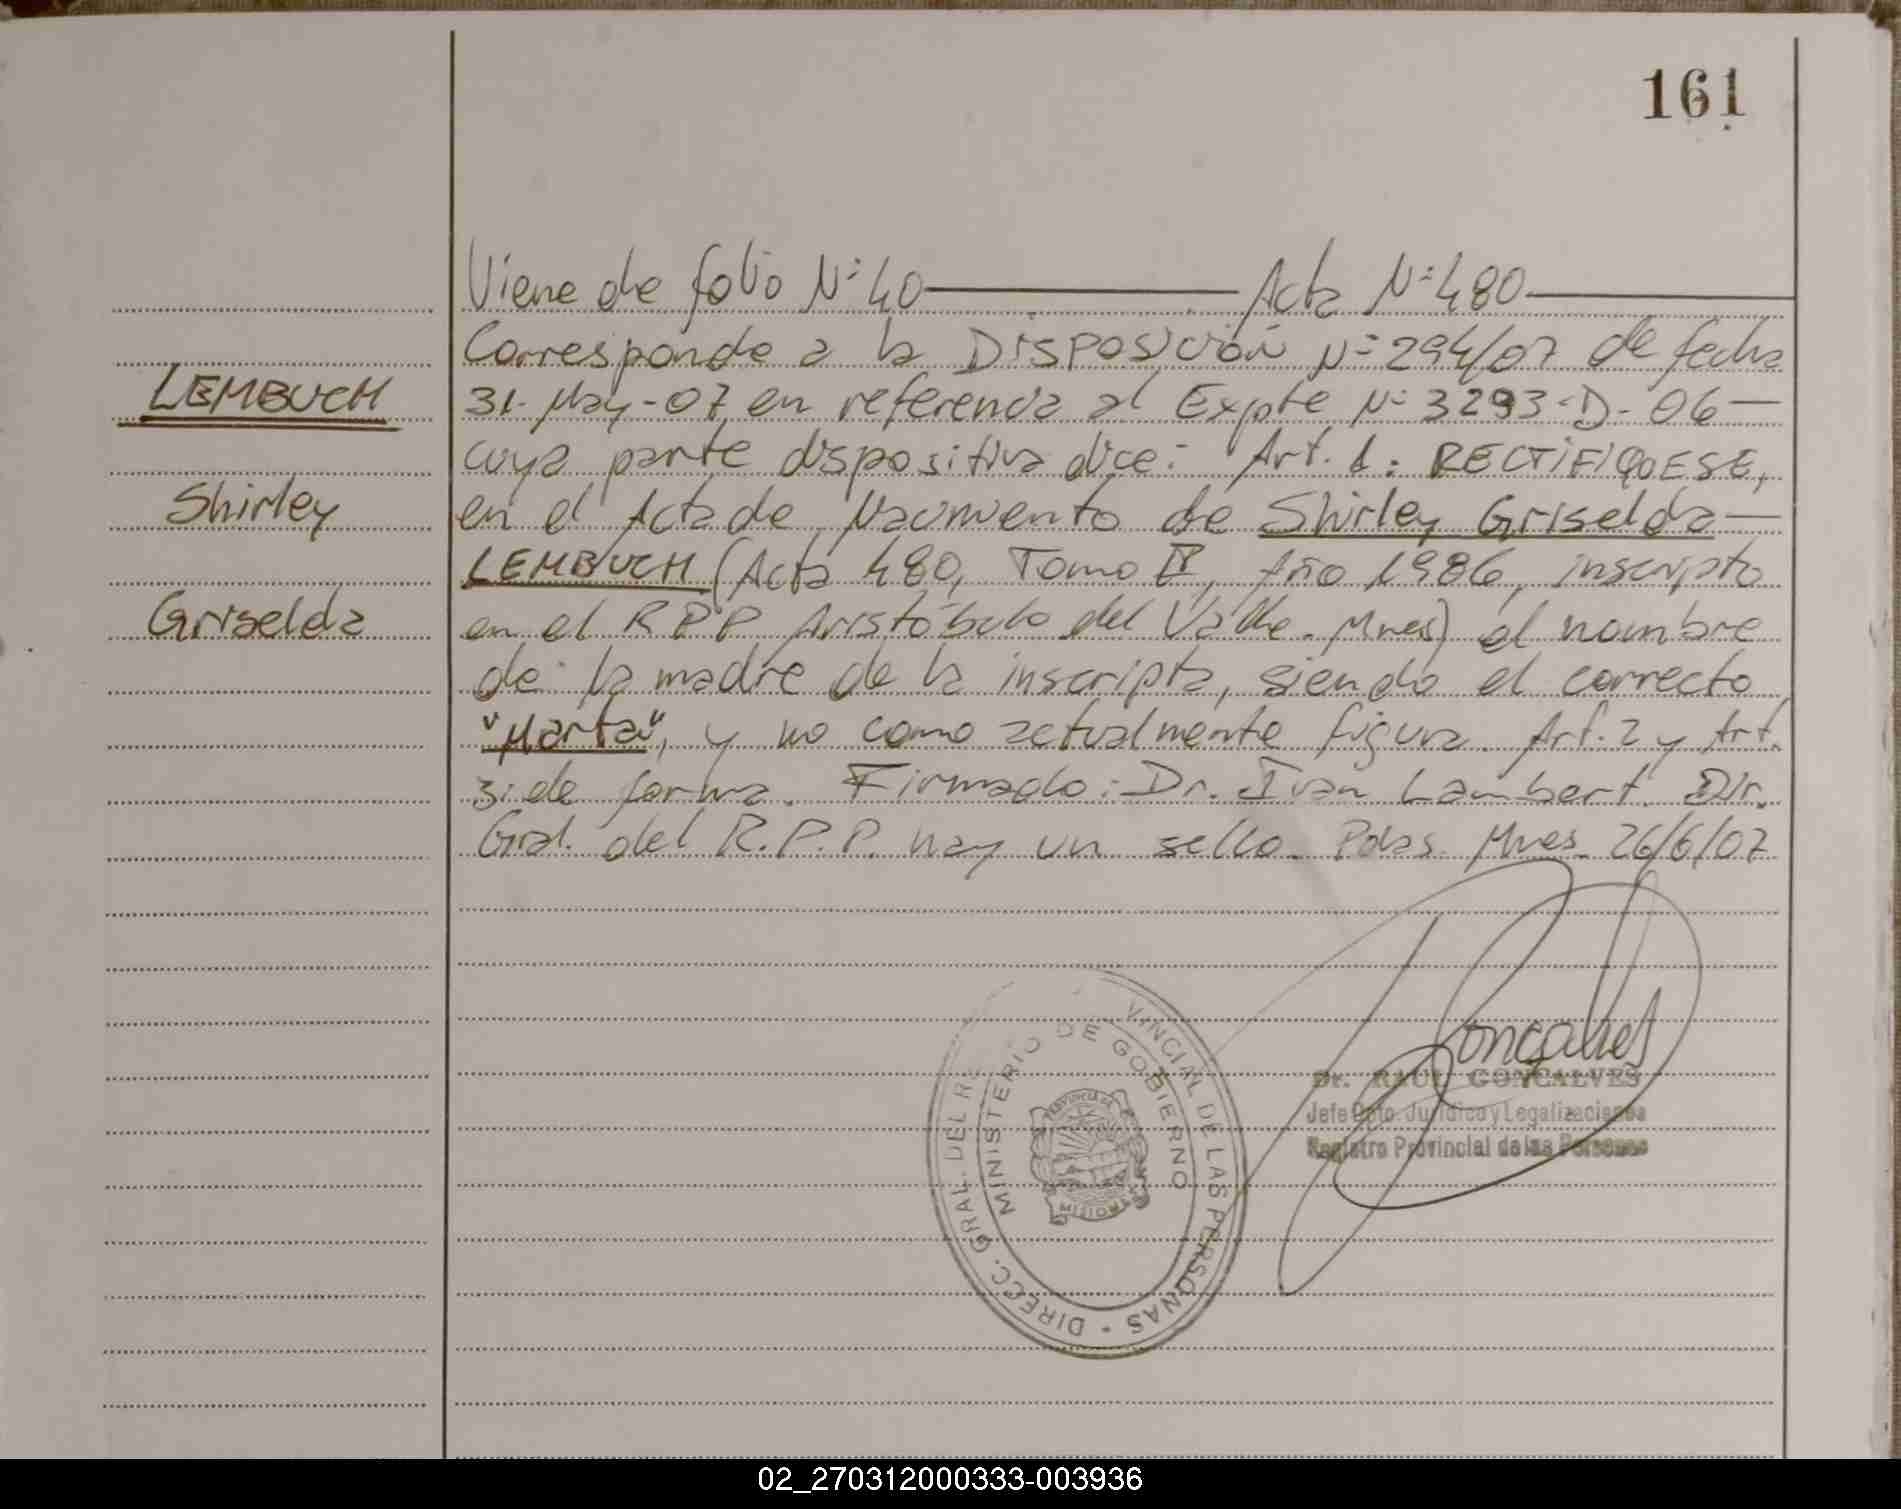 161
Viene de folio N° 40 Acta N° 480
Corresponde a la DISPOSICIÓN N° 294/07 de fecha
LEMBUCH
31-May-07 en referencia al Expte N° 3293-D-06
cuya parte dispositiva dice: Art. 1: RECTIFIQUESE,
Shirley
en el Acta de Nacimiento de Shirley Griselda
LEMBUCH (Acta 480, Tomo II, Año 1986, inscripto
Griselda
en el RPP Aristóbulo del Valle. Mnes) el nombre
de la madre de la inscripta, siendo el correcto
"Marta", y no como actualmente figura. Art. 2 y Art.
3: de forma. Firmado: Dr. Ivan Lambert. Dir.
Gral. del R.P.P. hay un sello. Pdas. Mnes. 26/6/07
Gonçalves
Dr. RAUL GONÇALVES
Jefe Dpto. Jurídico y Legalizaciones
Registro Provincial de las Personas
DIRECC. GRAL. DEL RE VINCIAL DE LAS PERSONAS
MINISTERIO DE GOBIERNO
PROVINCIA DE
MISIONES
02_270312000333-003936